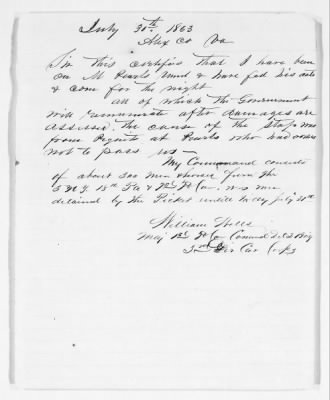 July 30th. 1863
Alex Co Va
I'm this certifies that I have been
on M Pearls land & have fed his oats
& corn for the night
all of which the Government
will renumerate after damages are
assessed. The cause of the Stop was
from Pequets at Pearls who had orders
not to pass us —
My Command consists
of about 300 men chosen from the
5 N.Y. 18th Pa & Cav. was men
detained by the Picket untill to day July 30th
William Wells
Maj 1st Cav Comand 2d Brig
3rd Div Cav Corps